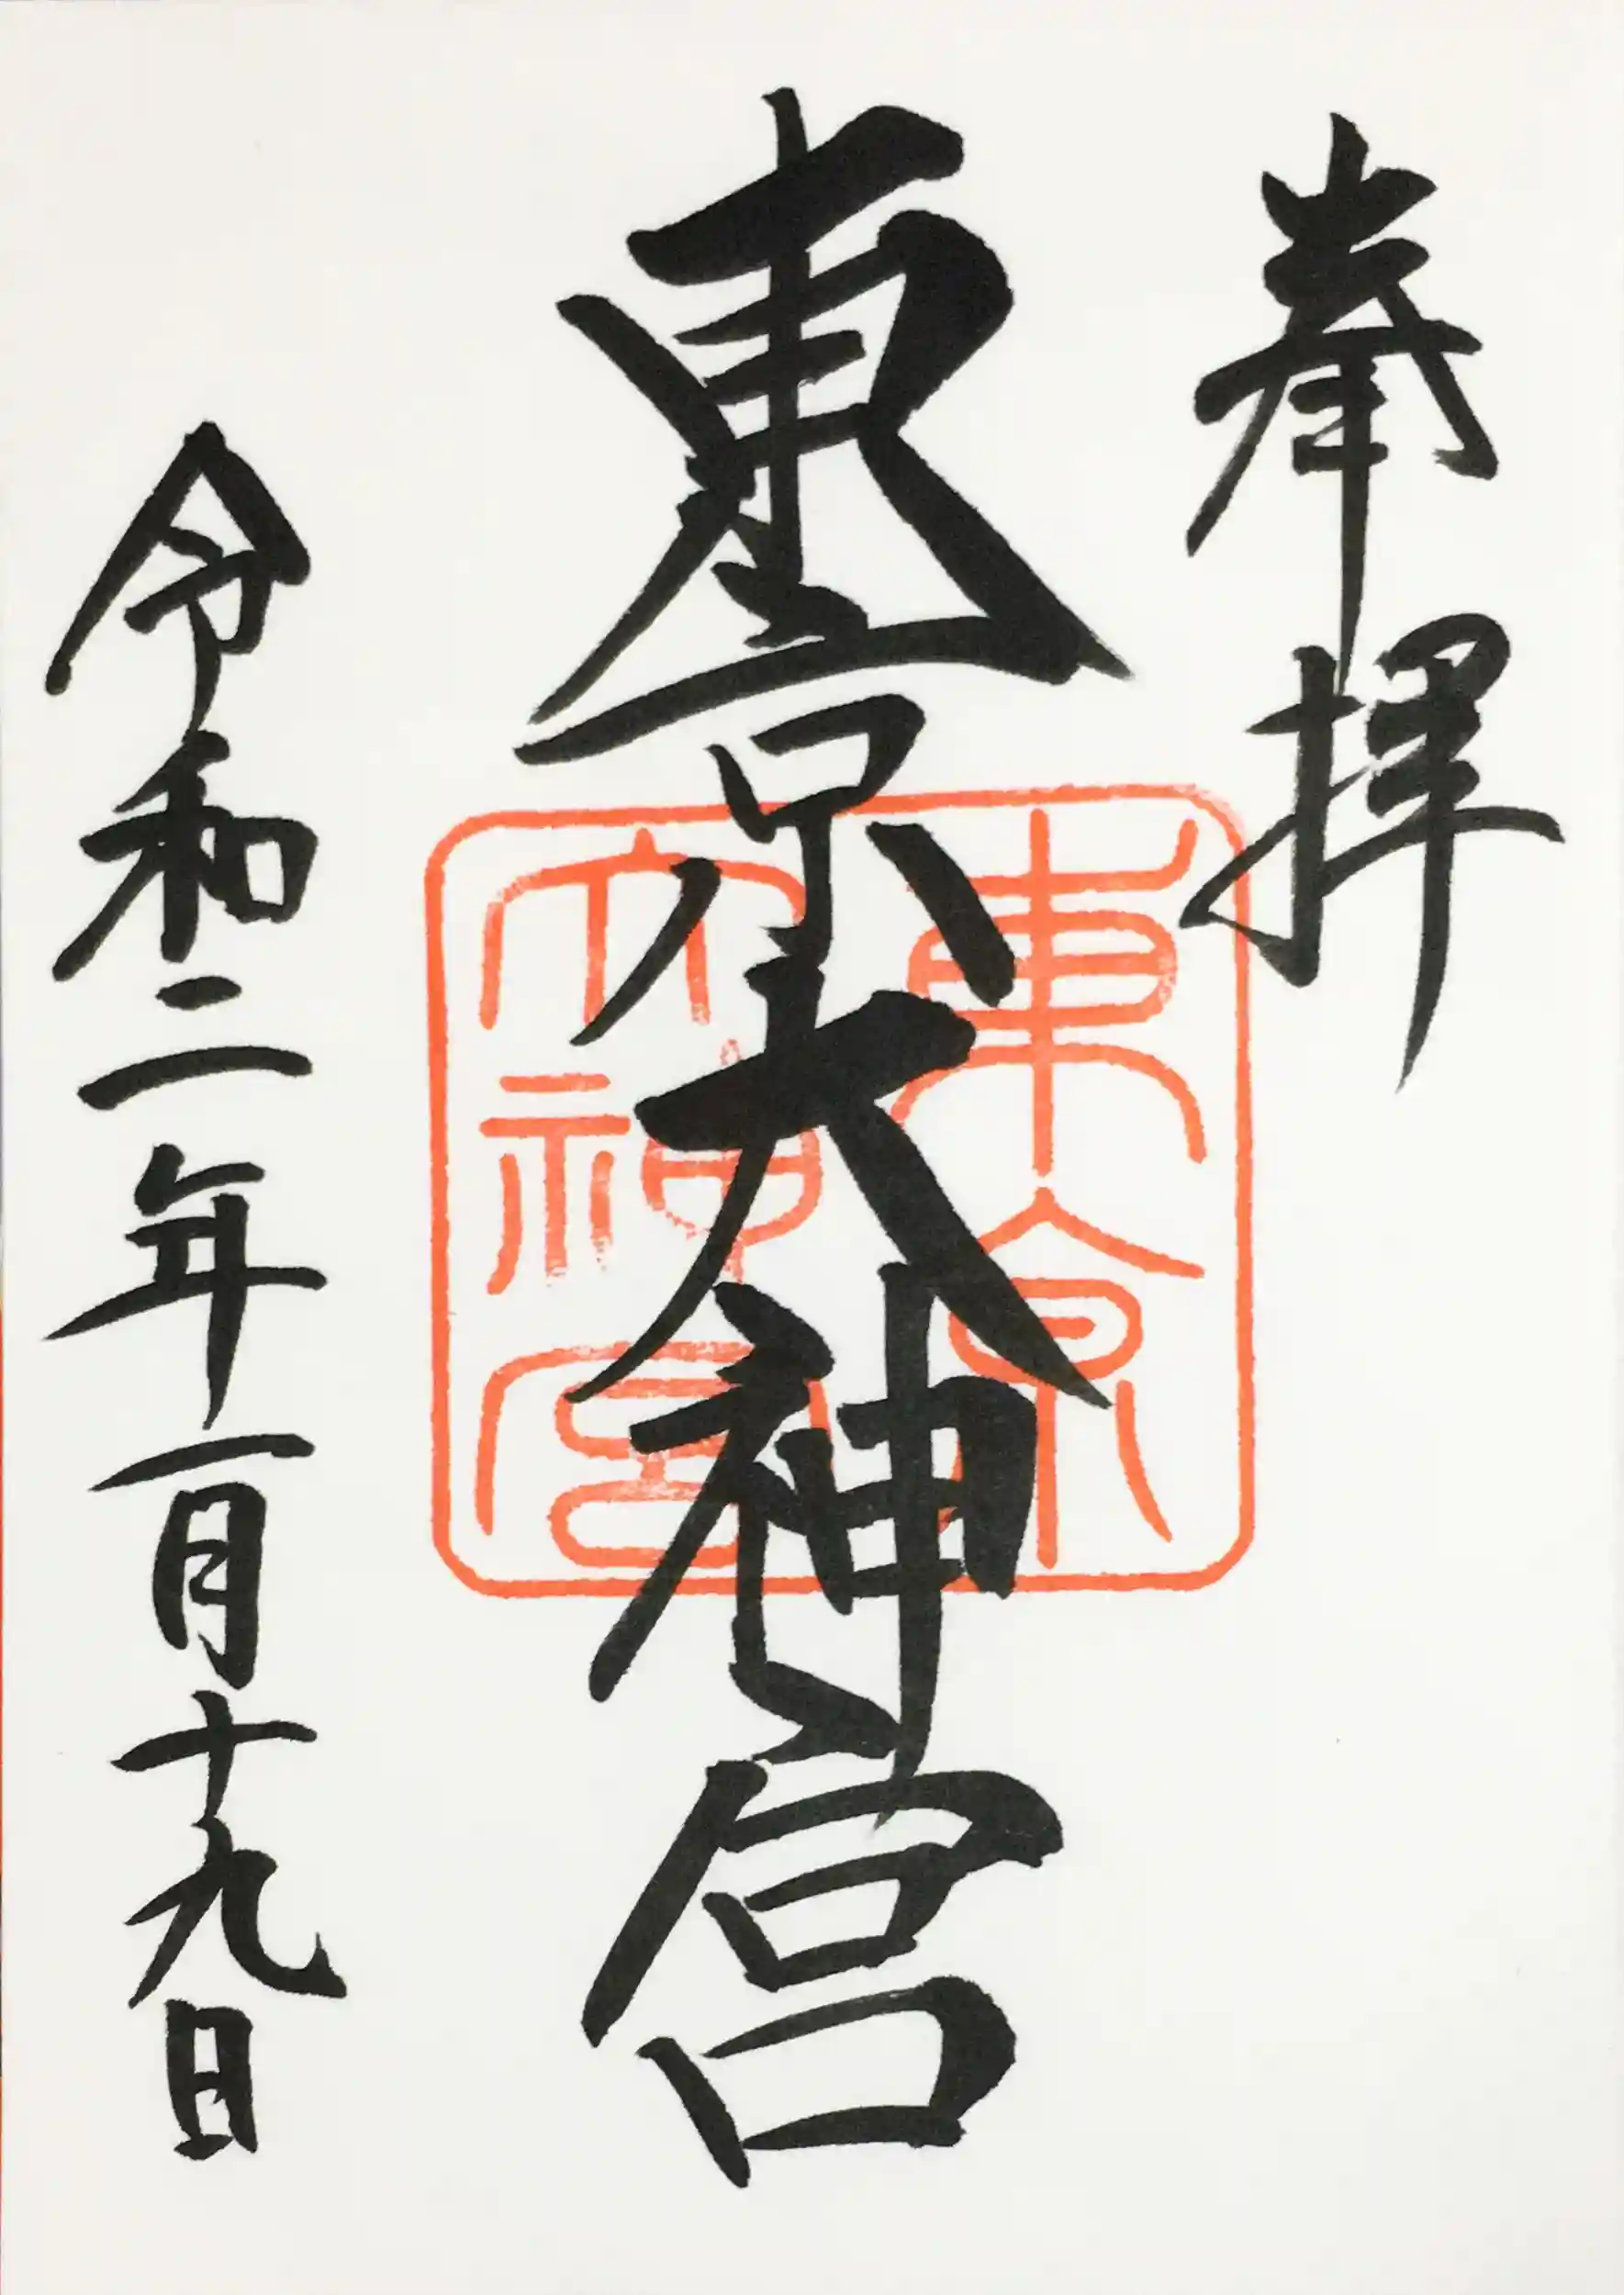 奉拝
東京大神宮
東京
大神宮
令和二年一月十九日